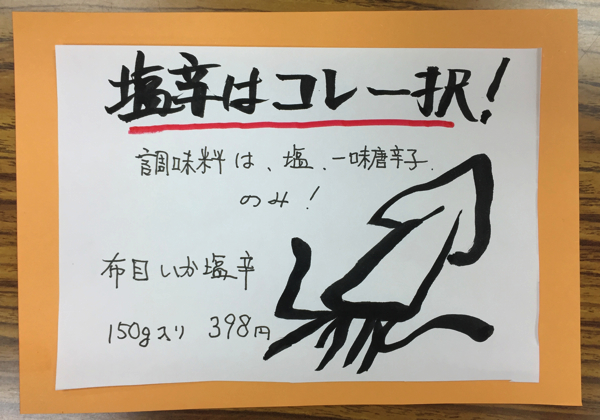 塩辛はコレ一択!
調味料は、塩、一味唐辛子
のみ!
布目いか塩辛
150g入り 398円